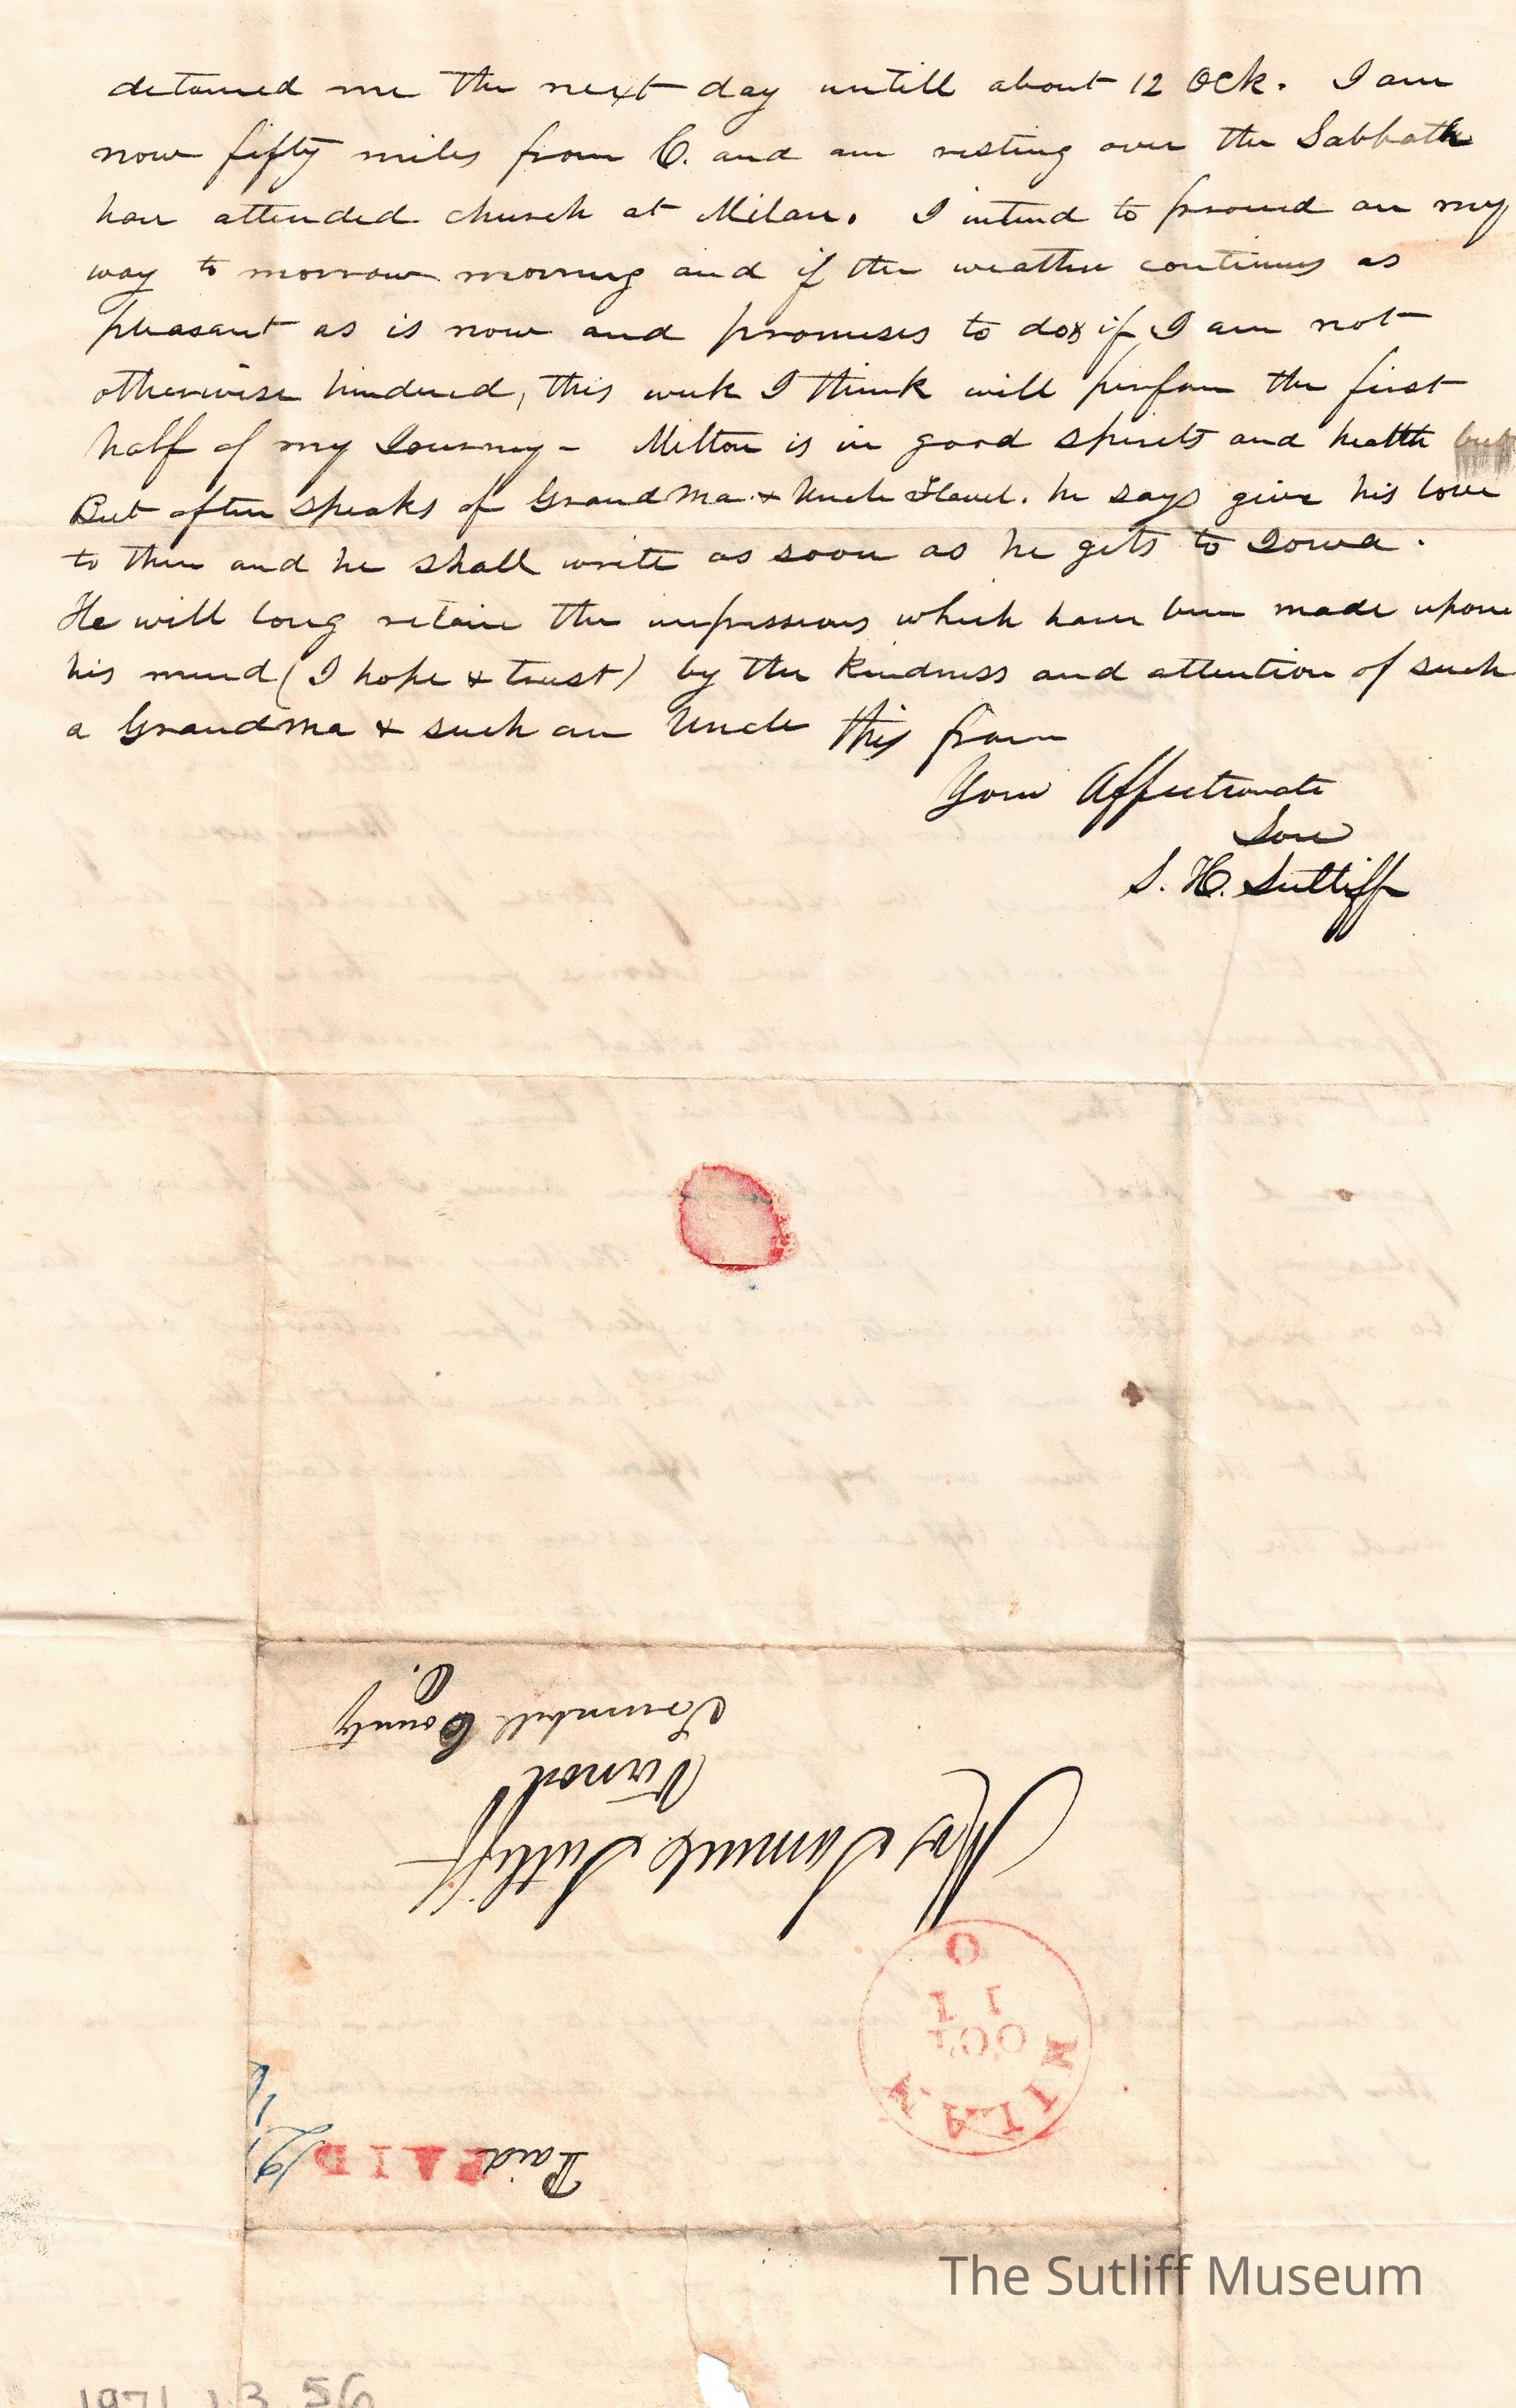 detained me the next day untill about 12 Ock. I am
now fifty miles from C. and am resting over the Sabbath
have attended church at Milan. I intend to proceed on my
way to morrow morning and if the weather continues as
pleasant as is now and promises to do & if I am not
otherwise hindered, this week I think will perform the first
half of my Journey - Milton is in good spirits and health but
But often speaks of Grand Ma & Uncle Flavel. he says give his love
to them and he shall write as soon as he gets to Iowa.
He will long retain the impressions which have been made upon
his mind (I hope & trust) by the kindness and attention of such
a Grand Ma & such an Uncle this from
Your Affectionate
Son
S. H. Sutliff
Paid
PAID
12 1/2
MILAN
OCT
11
O
Mrs Samuel Sutliff
Vernon
Trumbull County
O.
The Sutliff Museum
1971.13.56